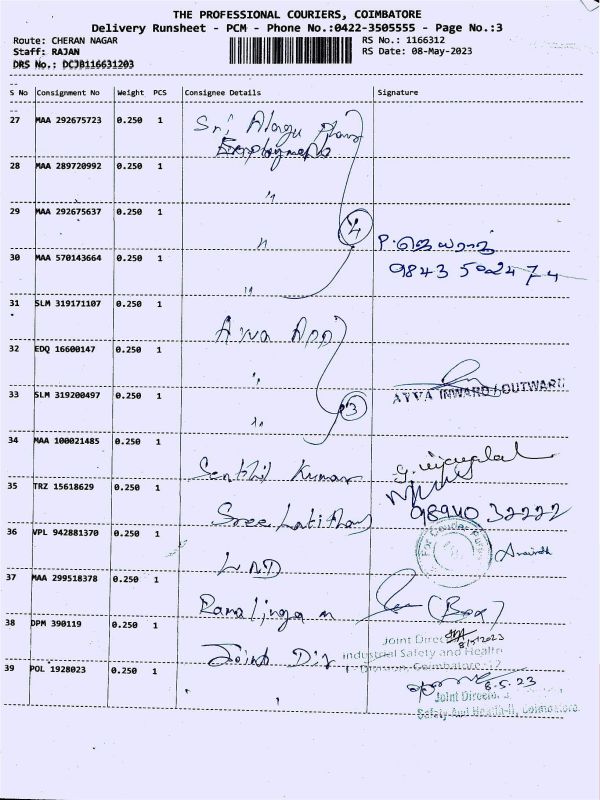 THE PROFESSIONAL COURIERS, COIMBATORE
Delivery Runsheet - PCM - Phone No.:0422-3505555 - Page No.:3
Route: CHERAN NAGAR
RS No.: 1166312
Staff: RAJAN
RS Date: 08-May-2023
DRS No.: DCJB116631203
S No Consignment No Weight PCS Consignee Details Signature
27 MAA 292675723 0.250 1 Sri Alagu
Employments
28 MAA 289720992 0.250 1 "
29 MAA 292675637 0.250 1 "
4
30 MAA 570143664 0.250 1 "
31 SLM 319171107 0.250 1 Avva App
32 EDQ 16600147 0.250 1 "
33 SLM 319200497 0.250 1 "
3
AVVA INWARD / OUTWARD
34 MAA 100021485 0.250 1 Senthil Kumar
35 TRZ 15618629 0.250 1 Sree
98940 32222
36 VPL 942881370 0.250 1 LND
For Courier
Anirudh
37 MAA 299518378 0.250 1 Ramalingam
38 DPM 390119 0.250 1 Joint Dir
8/5/2023
Joint Director
Industrial Safety and Health
Division, Coimbatore-12
39 POL 1928023 0.250 1 "
8.5.23
Joint Director
Safety And Health-II, Coimbatore